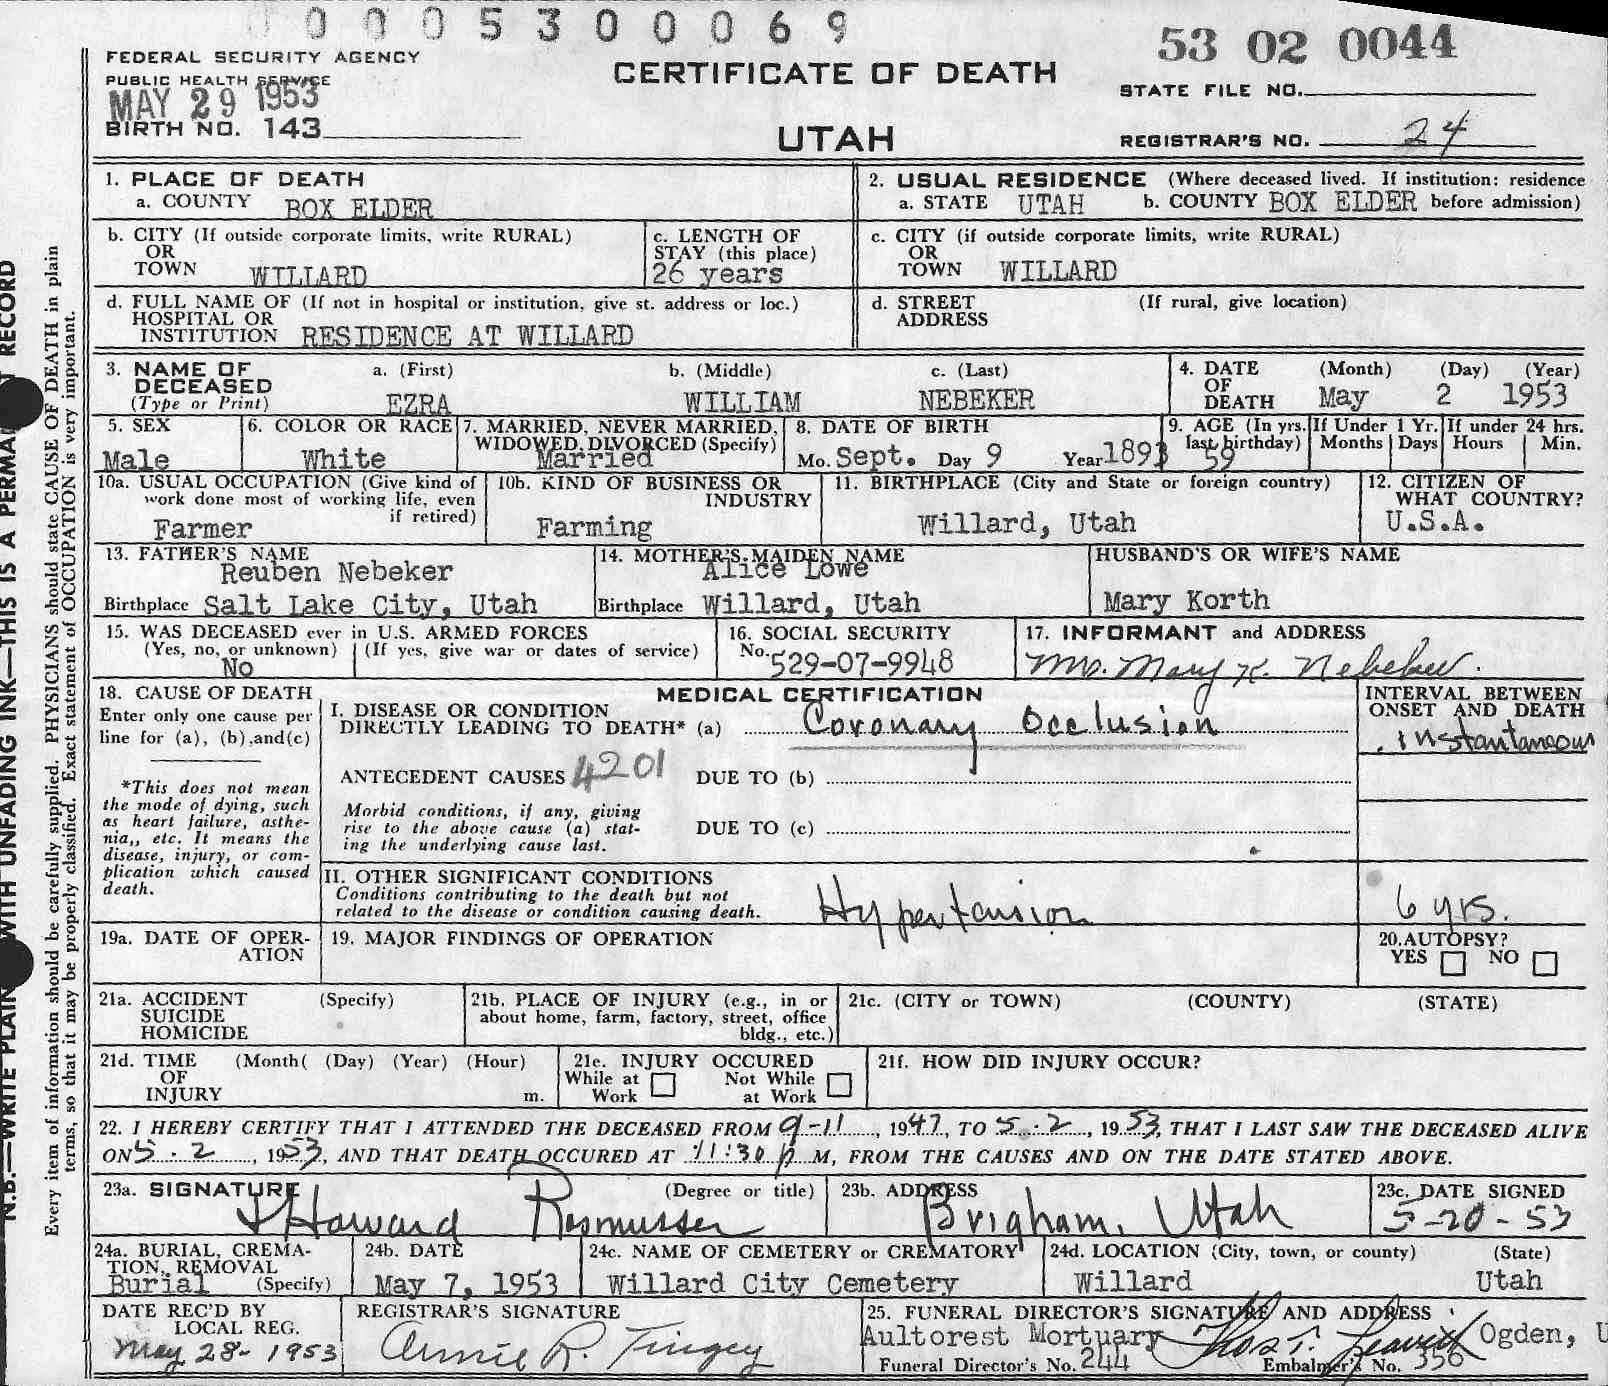 0 0 0 5 3 0 0 0 6 9
53 02 0044
FEDERAL SECURITY AGENCY
PUBLIC HEALTH SERVICE
MAY 29 1953
BIRTH NO. 143
CERTIFICATE OF DEATH
UTAH
STATE FILE NO.
REGISTRAR'S NO. 24
1. PLACE OF DEATH
a. COUNTY BOX ELDER
2. USUAL RESIDENCE (Where deceased lived. If institution: residence
a. STATE UTAH b. COUNTY BOX ELDER before admission)
b. CITY (If outside corporate limits, write RURAL)
OR
TOWN WILLARD
c. LENGTH OF
STAY (this place)
26 years
c. CITY (if outside corporate limits, write RURAL)
OR
TOWN WILLARD
d. FULL NAME OF (If not in hospital or institution, give st. address or loc.)
HOSPITAL OR
INSTITUTION RESIDENCE AT WILLARD
d. STREET (If rural, give location)
ADDRESS
3. NAME OF
DECEASED
(Type or Print)
a. (First)
EZRA
b. (Middle)
WILLIAM
c. (Last)
NEBEKER
4. DATE (Month) (Day) (Year)
OF
DEATH May 2 1953
5. SEX
Male
6. COLOR OR RACE
White
7. MARRIED, NEVER MARRIED,
WIDOWED, DIVORCED (Specify)
Married
8. DATE OF BIRTH
Mo. Sept. Day 9 Year 1893
9. AGE (In yrs.
last birthday)
59
If Under 1 Yr.
Months Days
If under 24 hrs.
Hours Min.
10a. USUAL OCCUPATION (Give kind of
work done most of working life, even
if retired)
Farmer
10b. KIND OF BUSINESS OR
INDUSTRY
Farming
11. BIRTHPLACE (City and State or foreign country)
Willard, Utah
12. CITIZEN OF
WHAT COUNTRY?
U.S.A.
13. FATHER'S NAME
Reuben Nebeker
Birthplace Salt Lake City, Utah
14. MOTHER'S MAIDEN NAME
Alice Lowe
Birthplace Willard, Utah
HUSBAND'S OR WIFE'S NAME
Mary Korth
15. WAS DECEASED ever in U.S. ARMED FORCES
(Yes, no, or unknown) (If yes, give war or dates of service)
No
16. SOCIAL SECURITY
No. 529-07-9948
17. INFORMANT and ADDRESS
Mrs. Mary K. Nebeker.
18. CAUSE OF DEATH
Enter only one cause per
line for (a), (b),and(c)
*This does not mean
the mode of dying, such
as heart failure, asthe-
nia,, etc. It means the
disease, injury, or com-
plication which caused
death.
MEDICAL CERTIFICATION
I. DISEASE OR CONDITION
DIRECTLY LEADING TO DEATH* (a) Coronary Occlusion
ANTECEDENT CAUSES 4201 DUE TO (b)
Morbid conditions, if any, giving
rise to the above cause (a) stat-
ing the underlying cause last.
DUE TO (c)
INTERVAL BETWEEN
ONSET AND DEATH
instantaneous
II. OTHER SIGNIFICANT CONDITIONS
Conditions contributing to the death but not
related to the disease or condition causing death.
Hypertension
6 yrs.
19a. DATE OF OPER-
ATION
19. MAJOR FINDINGS OF OPERATION
20.AUTOPSY?
YES NO
21a. ACCIDENT (Specify)
SUICIDE
HOMICIDE
21b. PLACE OF INJURY (e.g., in or
about home, farm, factory, street, office
bldg., etc.)
21c. (CITY or TOWN) (COUNTY) (STATE)
21d. TIME (Month( (Day) (Year) (Hour)
OF
INJURY m.
21e. INJURY OCCURED
While at Not While
Work at Work
21f. HOW DID INJURY OCCUR?
22. I HEREBY CERTIFY THAT I ATTENDED THE DECEASED FROM 9-11, 1947, TO 5-2, 1953, THAT I LAST SAW THE DECEASED ALIVE
ON 5-2, 1953, AND THAT DEATH OCCURED AT 11:30 p M, FROM THE CAUSES AND ON THE DATE STATED ABOVE.
23a. SIGNATURE (Degree or title)
J Howard Rasmussen
23b. ADDRESS
Brigham, Utah
23c. DATE SIGNED
5-20-53
24a. BURIAL, CREMA-
TION, REMOVAL
Burial (Specify)
24b. DATE
May 7, 1953
24c. NAME OF CEMETERY or CREMATORY
Willard City Cemetery
24d. LOCATION (City, town, or county) (State)
Willard Utah
DATE REC'D BY
LOCAL REG.
May 28-1953
REGISTRAR'S SIGNATURE
Annie R. Tingey
25. FUNERAL DIRECTOR'S SIGNATURE AND ADDRESS
Aultorest Mortuary Thos T. Leavitt Ogden, U
Funeral Director's No. 244 Embalmer's No. 356
N.B.—WRITE PLAIN WITH UNFADING INK—THIS IS A PERMA RECORD
Every item of information should be carefully supplied. PHYSICIANS should state CAUSE OF DEATH in plain
terms, so that it may be properly classified. Exact statement of OCCUPATION is very important.